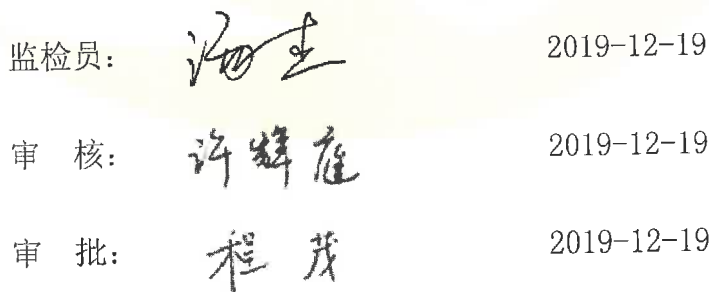 监检员: 2019-12-19
审 核: 许辉庭 2019-12-19
审 批: 程茂 2019-12-19